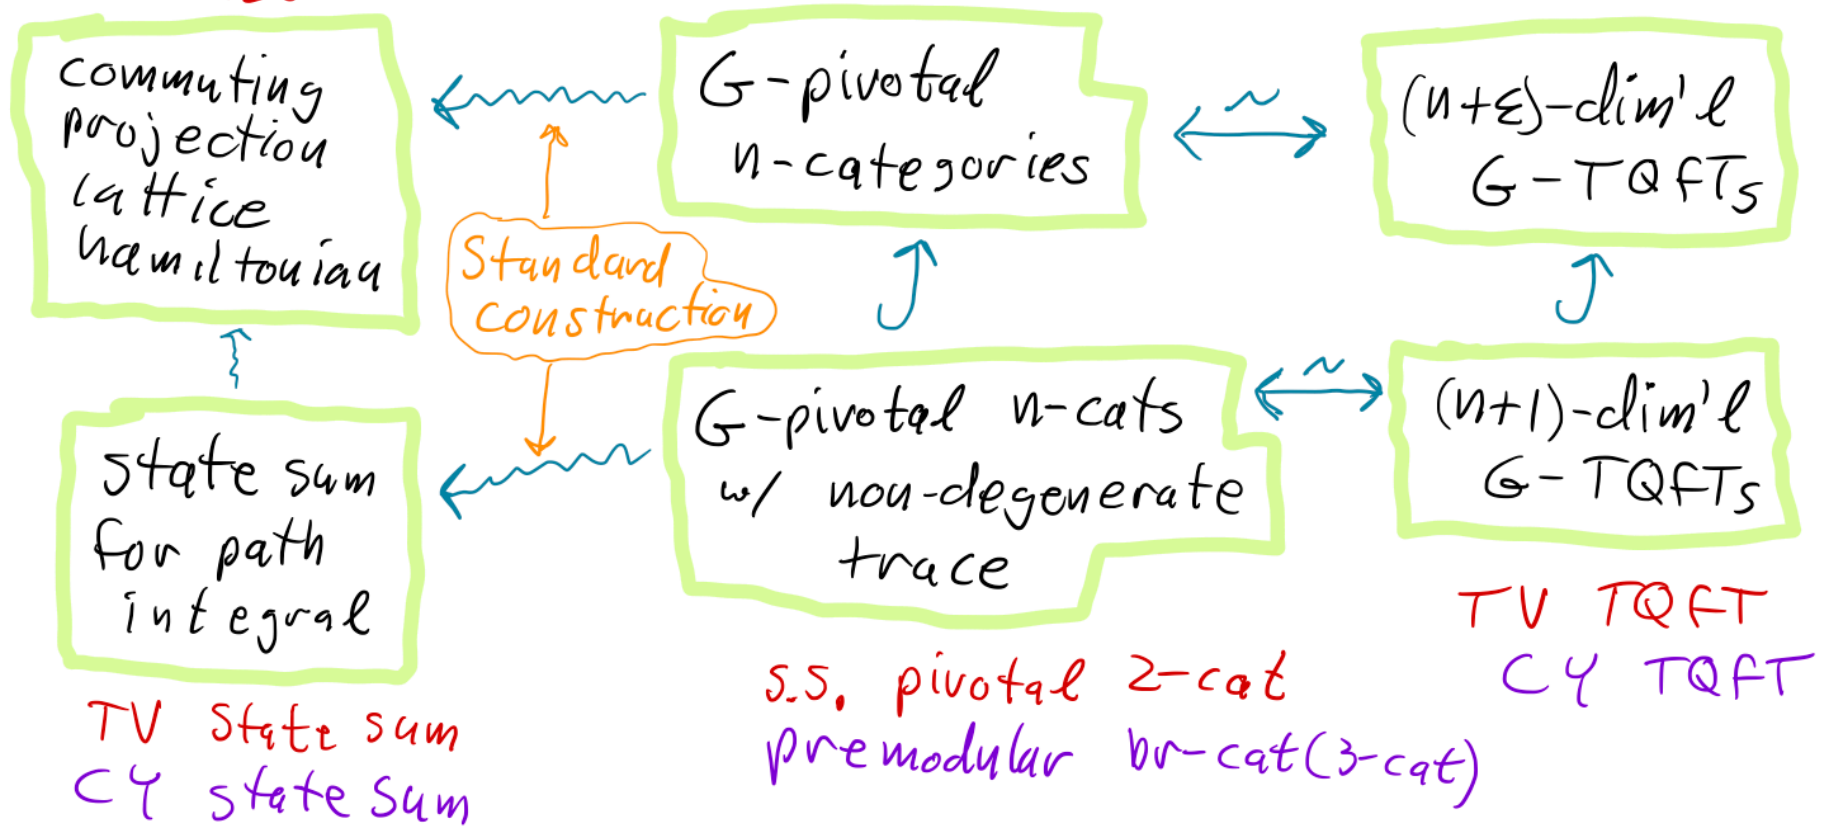 commuting
projection
lattice
hamiltonian
G-pivotal
n-categories
~
(n+ε)-dim'l
G-TQFTs
Standard
construction
state sum
for path
integral
G-pivotal n-cats
w/ non-degenerate
trace
~
(n+1)-dim'l
G-TQFTs
TV state sum
CY state sum
s.s. pivotal 2-cat
premodular br-cat(3-cat)
TV TQFT
CY TQFT